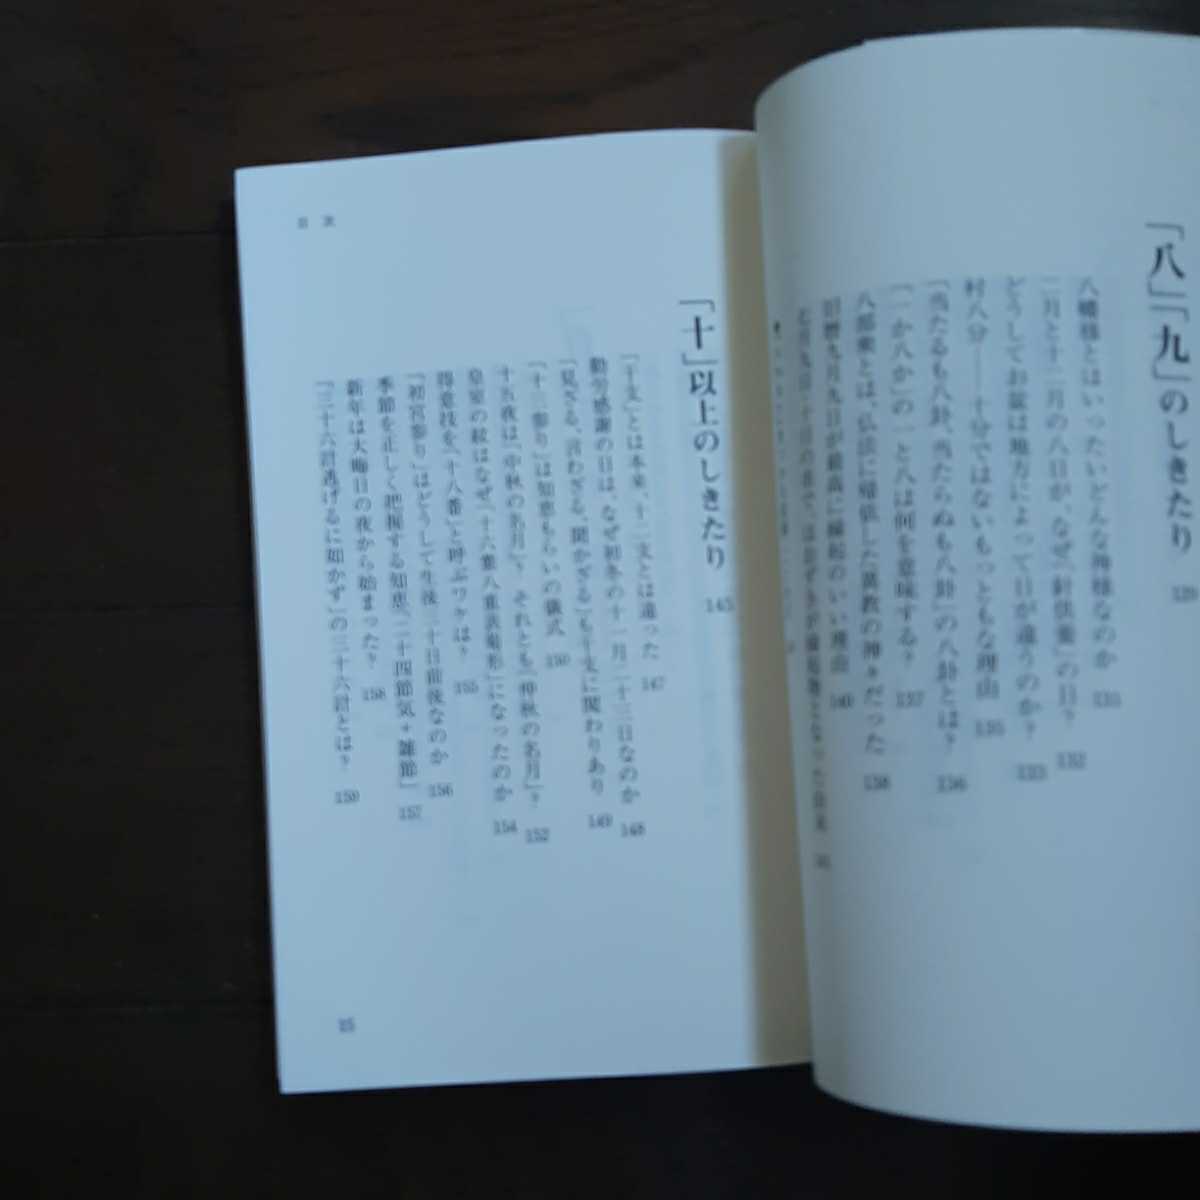 「八」「九」のしきたり 129
八幡様とはいったいどんな神様なのか 131
二月と十二月の八日が、なぜ「針供養」の日？ 132
どうしてお盆は地方によって日が違うのか？ 133
村八分――十分ではないもっともな理由 135
「当たるも八卦、当たらぬも八卦」の八卦とは？ 136
「一か八か」の一と八は何を意味する？ 137
八部衆とは、仏法に帰依した異教の神々だった 138
旧暦九月九日が最高に縁起のいい理由 140
「十」以上のしきたり 145
「干支」とは本来、十二支とは違った 147
勤労感謝の日は、なぜ初冬の十一月二十三日なのか 148
「見ざる、言わざる、聞かざる」も干支に関わりあり 149
「十三参り」は知恵もらいの儀式 150
十五夜は「中秋の名月」？ それとも「仲秋の名月」？ 152
皇室の紋はなぜ「十六葉八重表菊形」になったのか 154
得意技を「十八番」と呼ぶワケは？ 155
「初宮参り」はどうして生後三十日前後なのか 156
季節を正しく把握する知恵「二十四節気＋雑節」 157
新年は大晦日の夜から始まった？ 158
「三十六計逃げるに如かず」の三十六計とは？ 159
目次
25